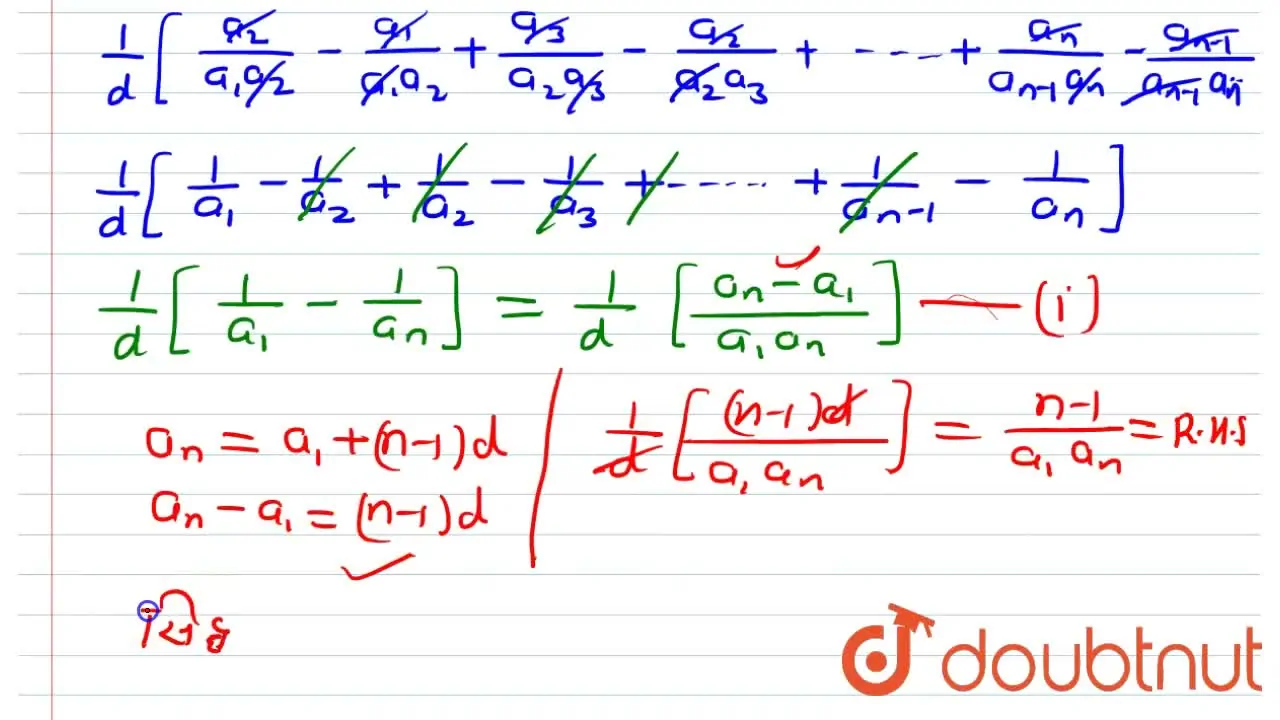 1/d [ a2/a1a2 − a1/a1a2 + a3/a2a3 − a2/a2a3 + ---- + an/an−1an − an−1/an−1an
1/d [ 1/a1 − 1/a2 + 1/a2 − 1/a3 + ----- + 1/an−1 − 1/an ]
1/d [ 1/a1 − 1/an ] = 1/d [ an − a1/a1an ] — (i)
an = a1 + (n−1)d
an − a1 = (n−1)d
1/d [ (n−1)d/a1an ] = n−1/a1an = R.H.S
doubtnut